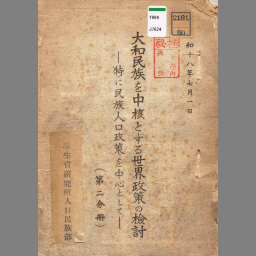 1964
J7624
2181
50
和十八年七月一日
大和民族を中核とする世界政策の検討
―特に民族人口政策を中心として―
(第二分冊)
厚生省研究所人口民族部